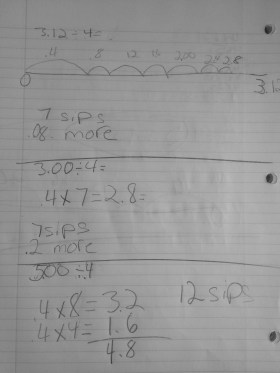 3.12 ÷ 4 =
.4 .8 12 1.6 2.00 2.4 2.8
0 3.1
7 sips
.08 more
3.00 ÷ 4 =
.4 x 7 = 2.8 =
7 sips
.2 more
500 ÷ .4
.4 x 8 = 3.2 12 sips
.4 x 4 = 1.6
4.8